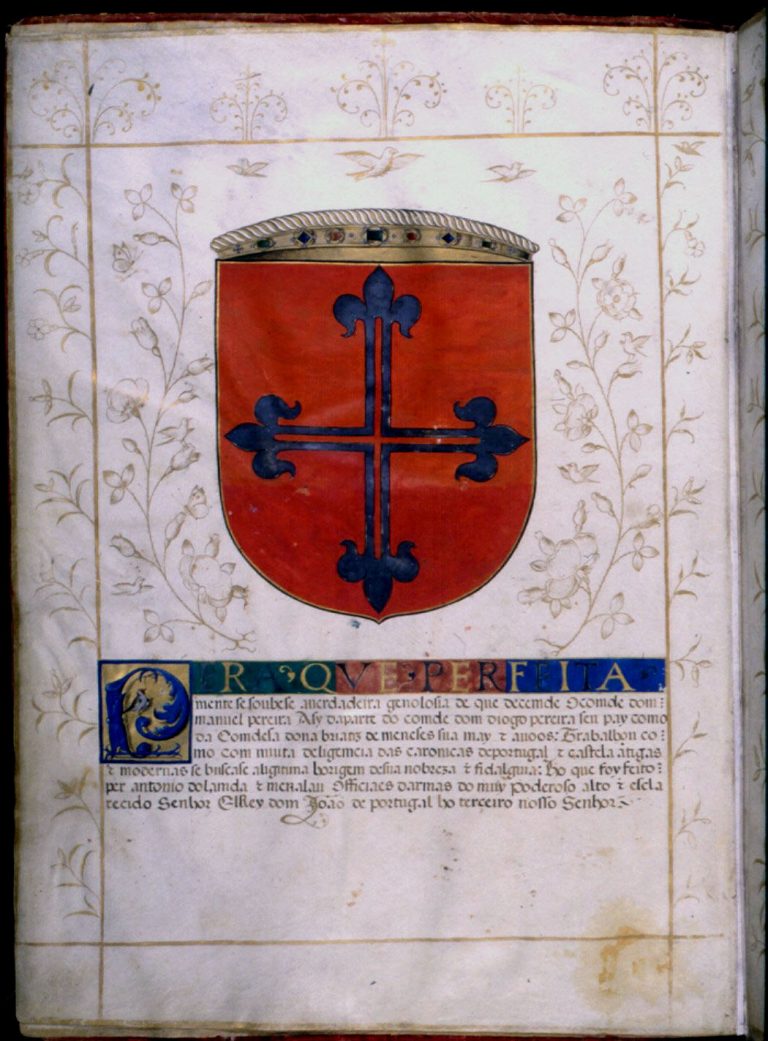 PERA QVE PERFEITA
mente se soubese averdadeira genolosia de que decemde Ocomde dom:
manuel pereira Asy daparte do comde dom diogo pereira seu pay como
da Comdesa dona briatiz de meneses sua may τ avoos: Trabalhou co-
mo com muita deligemcia das caronicas deportugal τ castela amtigas
τ modernas se buscase aligitima horigem desua nobreza τ fidalguia: Ho que foy feito:
per antonio dolamda τ menalau Officiaes darmas do muy poderoso alto τ escla
recido Senhor ElRey dom João de portugal ho terçeiro nosso Senhor~